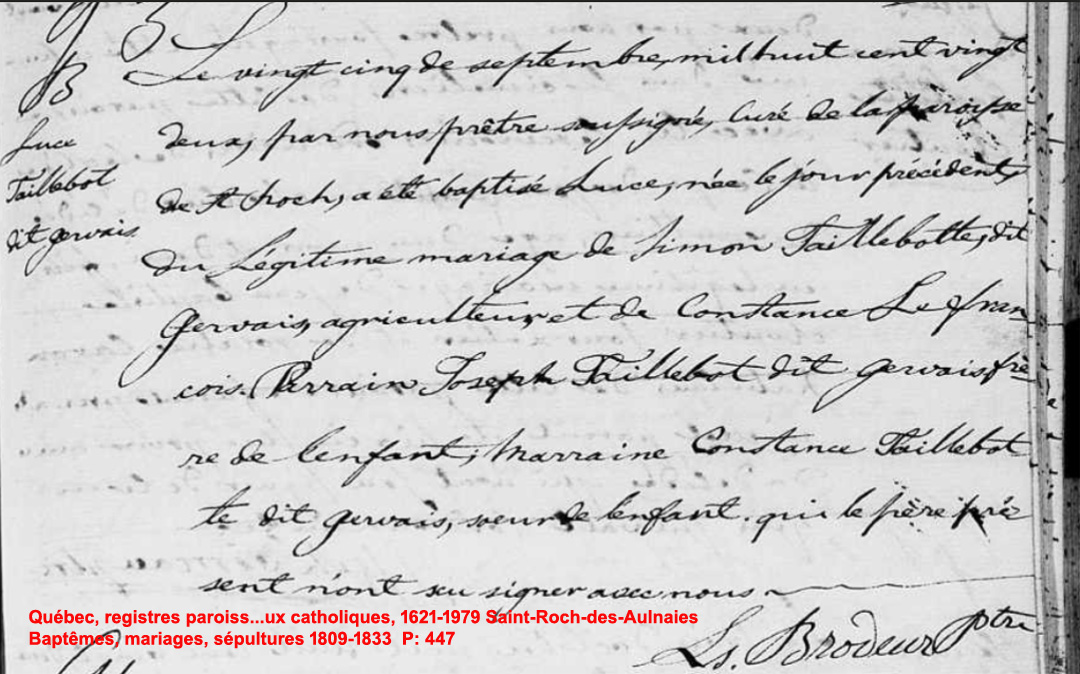 B
Luce
Taillebot
dit gervais
Le vingt cinq de septembre, mil huit cent vingt
deux, par nous prêtre soussigné, Curé de la paroisse
de St Roch, a été baptisé Luce, née le jour précédent,
du Légitime mariage de Simon Taillebotte, dit
Gervais, agriculteur, et de Constance Le fran
cois. Parrain Joseph Taillebot dit Gervais frè=
re de l'enfant; Marraine Constance Taillebot
te dit gervais, soeur de l'enfant, qui le père pré=
sent n'ont su signer avec nous
Québec, registres paroiss...ux catholiques, 1621-1979 Saint-Roch-des-Aulnaies
Baptêmes, mariages, sépultures 1809-1833 P: 447
Ls. Brodeur Ptre